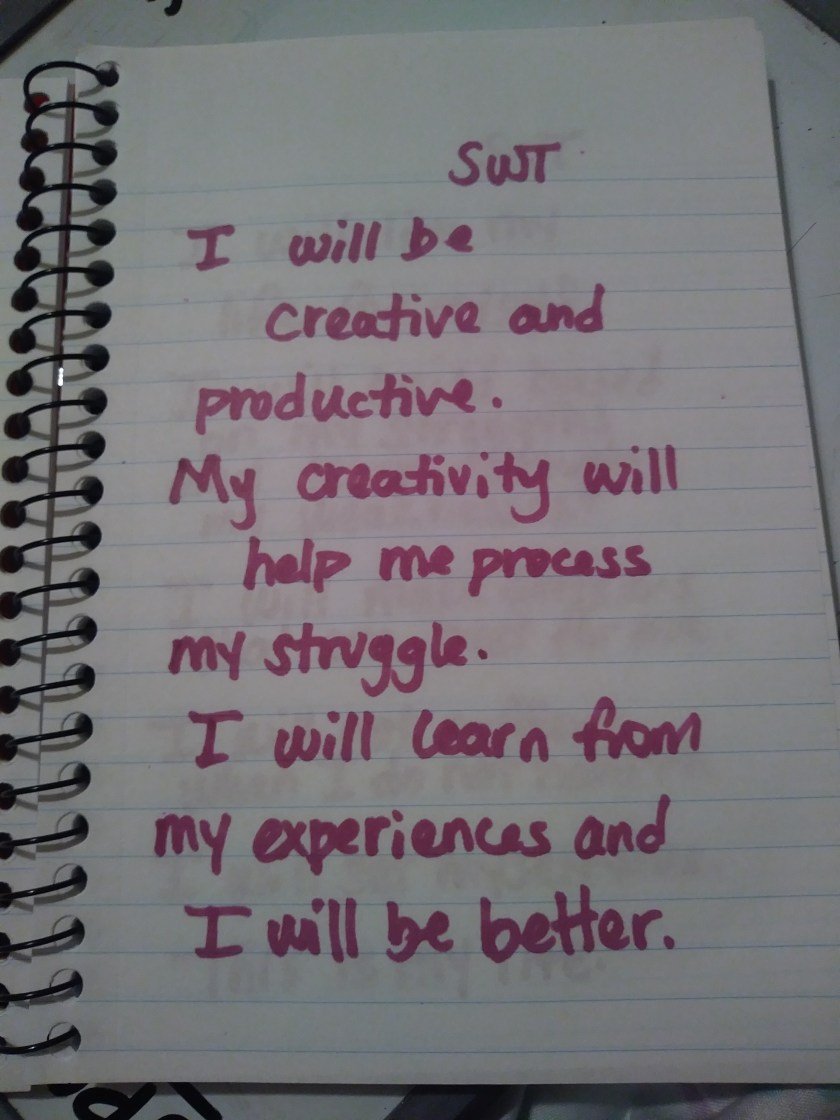 SWT
I will be
creative and
productive.
My creativity will
help me process
my struggle.
I will learn from
my experiences and
I will be better.